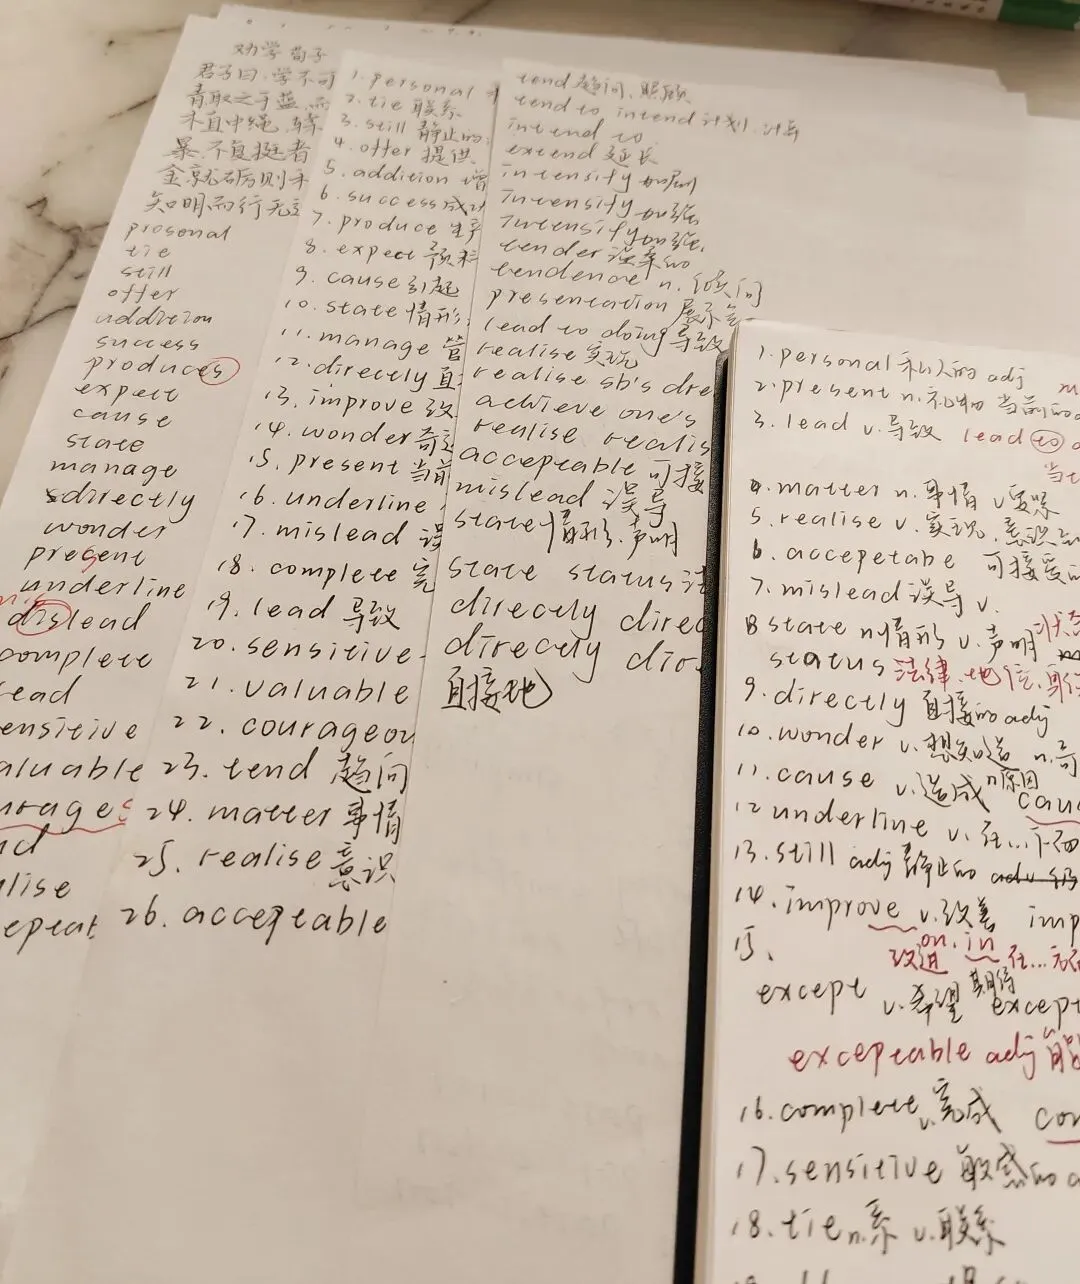 劝学 荀子
君子曰:学不可
青取之于蓝,而
木直中绳,
暴,不复挺者
金就砺则
知明而行无
prosonal
tie
still
offer
uddition
success
produces
expect
cause
state
manage
directly
wonder
present
underline
mislead
complete
ead
ensitive
aluable
urages
nd
lise
epeat
1. personal
2. tie 联系
3. still 静止的
4. offer 提供
5. addition 增
6. success 成功
7. produce 生产
8. expect 预料
9. cause 引起
10. state 情形
11. manage 管
12. directly 直
13. improve 改
14. wonder 奇
15. present 当前
16. underline
17. mislead 误
18. complete 完
19. lead 导致
20. sensitive
21. valuable
22. courageou
23. tend 趋向
24. matter 事情
25. realise 意识
26. acceptable
tend 趋向、照顾
tend to intend 计划、
intend to
extend 延长
intensify 加剧
intensify 加强
intensify 加强
tender 温柔的
tendence n. 倾向
presentation 展示
lead to doing 导致
realise 实现
realise sb's dre
achieve one's
realise realis
acceptable 可接
mislead 误导
state 情形、声明
state status 法
directly direc
directly dir
直接地
1. personal 私人的 adj
2. present n. 礼物 当前的
3. lead v. 导致 lead to
当
4. matter n. 事情 v. 要紧
5. realise v. 实现、意识
6. accepetabe 可接受的
7. mislead 误导 v.
8 state n 情形 v. 声明 状态
status 法律、地位、
9. directly 直接的 adj
10. wonder v. 想知道 n. 奇
11. cause v. 造成 n 原因 cau
12 underline v. 在...下面
13. still adj 静止的 adv 仍
14. improve v. 改善 imp
改进 on. in 在...方面
15、
except v. 希望 期待 except
excepeable adj 能
16. complete v. 完成 con
17. sensitive 敏感的 a
18. tie n. 系 v. 联系